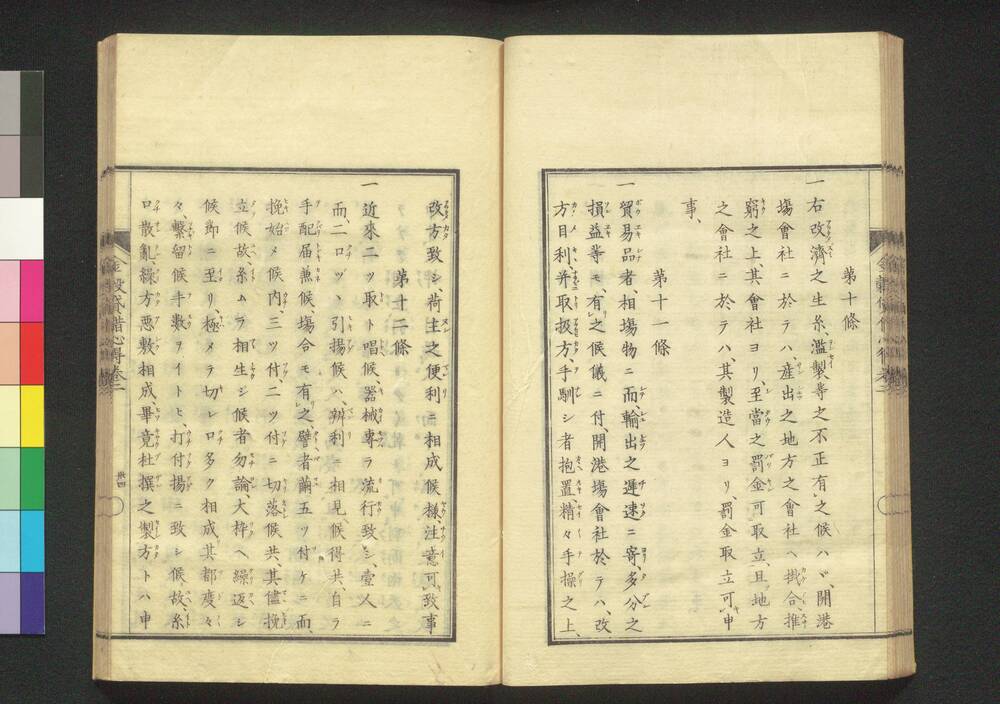 第十條
一右改濟之生糸、濫製等之不正有之候ハヾ、開港
塲會社ニ於テハ、産出之地方之會社ヘ掛合、推
窮之上、其會社ヨリ、至當之罰金可取立、且地方
之會社ニ於テハ、其製造人ヨリ、罰金取立可申
事、
第十一條
一貿易品者、相塲物ニ而、輸出之遲速ニ寄、多分之
損益等モ、有之候儀ニ付、開港塲會社於テハ、改
方目利、并取扱方、手馴シ者抱置、精々手操之上、
改方致シ、荷主之便利ニ相成候樣、注意可致事
第十二條
一近來二ツ取ト唱候、器械專ラ流行致シ、壹人ニ
而、二口ヅヽ引揚候ハ、辨利ニ相見候得共、自ラ
手配届兼候、塲合モ有之、譬者繭五ツ付ケニ而、
挽始メ候内、三ツ付、二ツ付ニ切落候共、其儘挽
立候故、糸ムラ相生シ候者勿論、大枠ヘ繰返シ
候節ニ至リ、極メテ切レ口多ク相成、其都度々
々、繋留候手數ヲイトヒ、打付揚ニ致シ候、故、糸
口散亂繰方惡敷相成、畢竟杜撰之製方トハ申
卅四